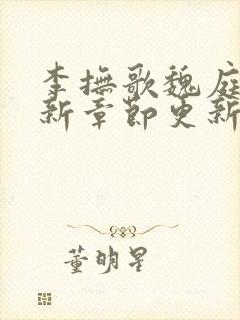 李撫歌魏庭
新章節更新
董明星